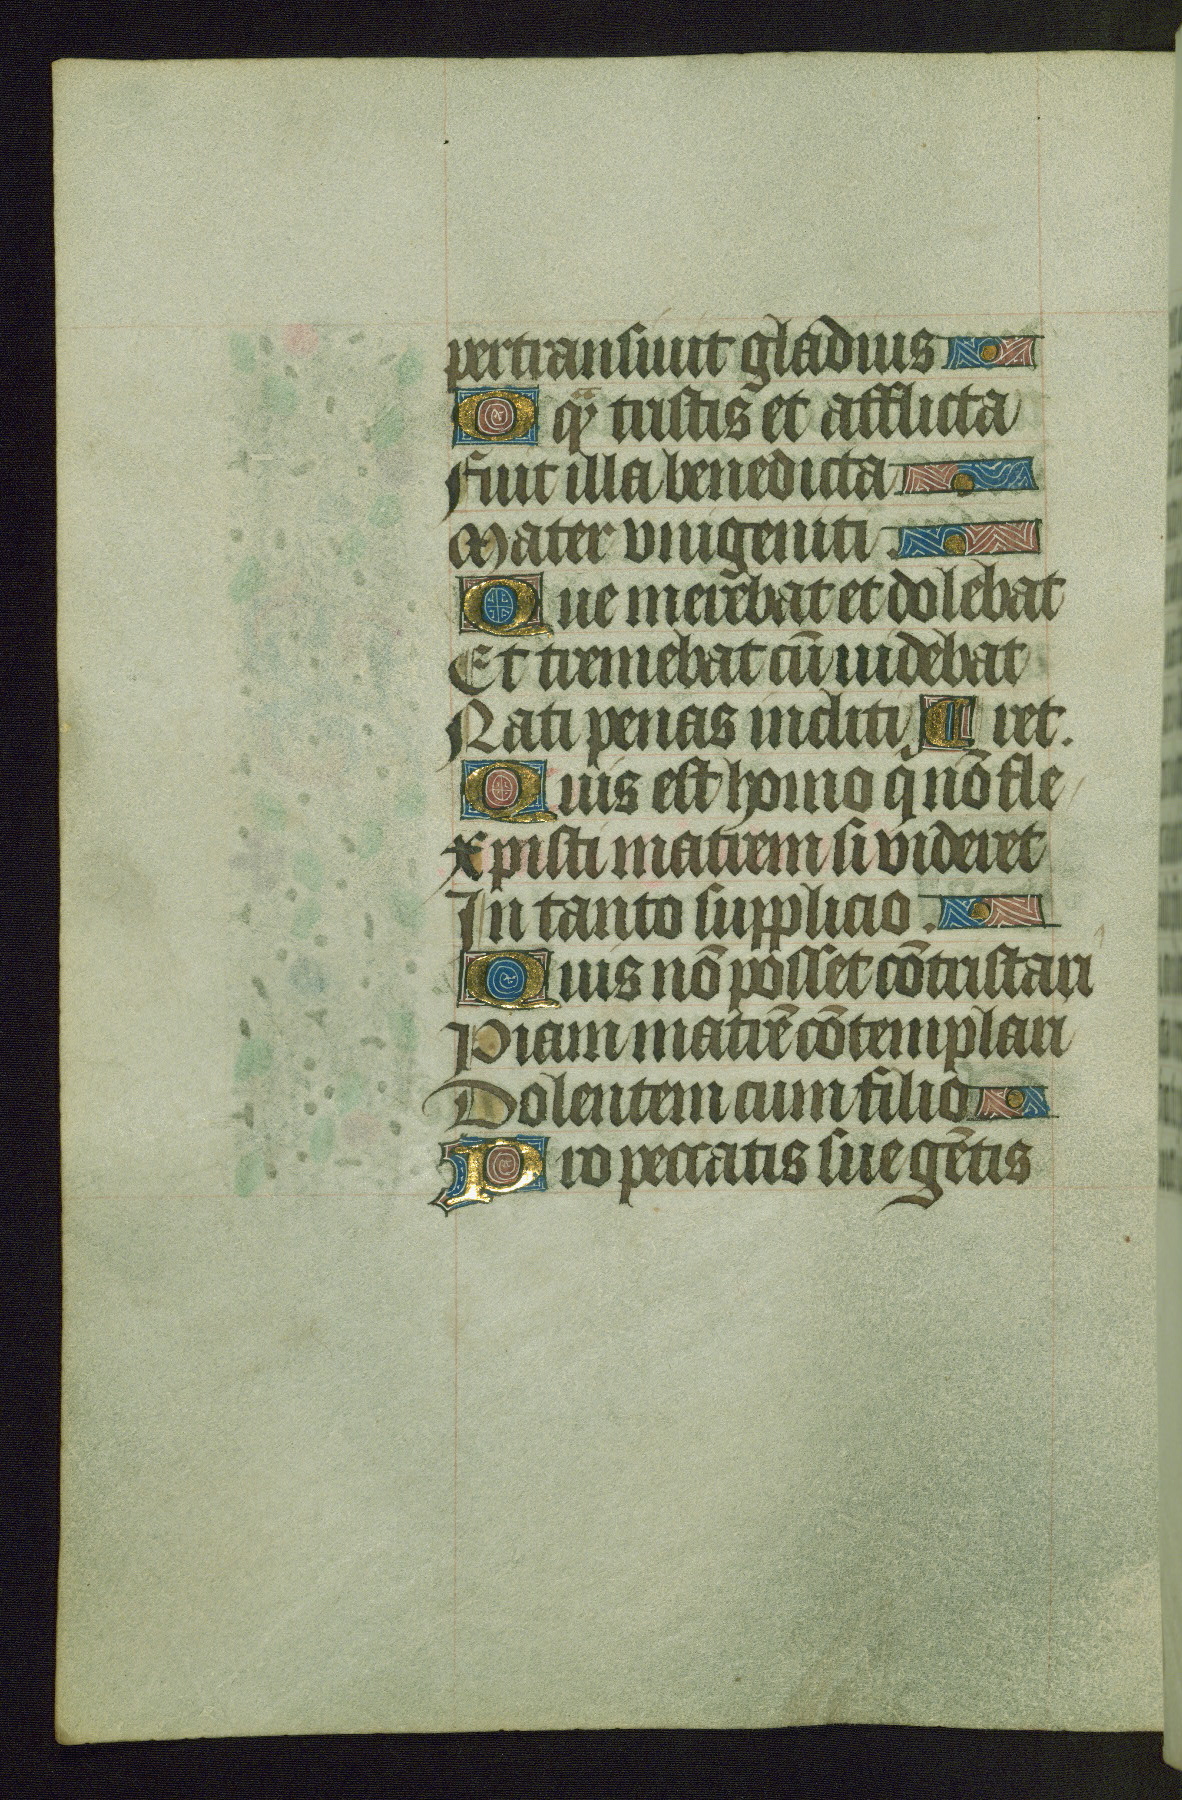 pertransiuit gladius
O q̃ tristis et afflicta
Fuit illa benedicta
Mater vnigeniti .
Que merebat et dolebat
Et tremebat cū uidebat
Nati penas incliti, ret.
Quis est homo q nō fle
xpisti matrem si videret
In tanto supplicio .
Quis nō posset cōtristari
Piam matrē cōtemplari
Dolentem cum filio
Pro peccatis sue gētis